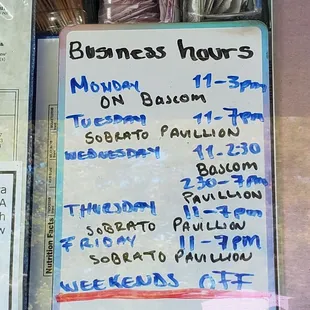 Business hours
MONDAY 11-3pm
ON Bascom
TUESDAY 11-7pm
SOBRATO PAVILLION
WEDNESDAY 11-2:30
Bascom
2:30-7PM
PAVILLION
THURSDAY 11-7pm
SOBRATO PAVILLION
FRIDAY 11-7pm
SOBRATO PAVILLION
WEEKENDS OFF
Nutrition Facts